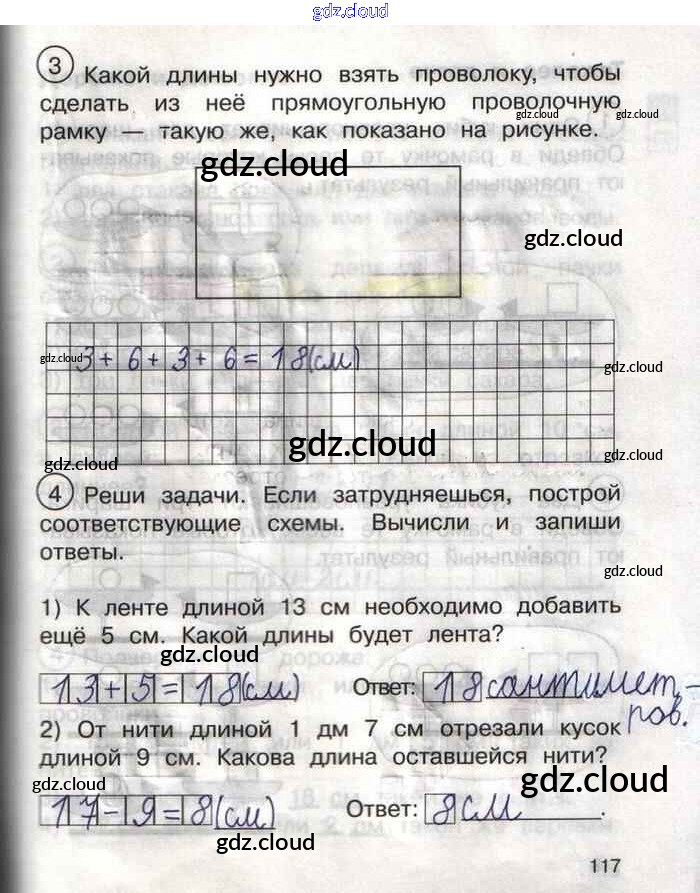 gdz.cloud
3 Какой длины нужно взять проволоку, чтобы
сделать из неё прямоугольную проволочную
gdz.cloud gdz.cloud
рамку — такую же, как показано на рисунке.
gdz.cloud
gdz.cloud
gdz.cloud 3+6+3+6=18(см)
gdz.cloud
gdz.cloud
gdz.cloud gdz.cloud
4 Реши задачи. Если затрудняешься, построй
соответствующие схемы. Вычисли и запиши
ответы.
gdz.cloud
1) К ленте длиной 13 см необходимо добавить
ещё 5 см. Какой длины будет лента?
gdz.cloud
13+5=18(см) Ответ: 18 сантимет-
ров.
2) От нити длиной 1 дм 7 см отрезали кусок
длиной 9 см. Какова длина оставшейся нити?
gdz.cloud gdz.cloud
17-9=8(см) Ответ: 8 см.
gdz.cloud
117
gdz.cloud